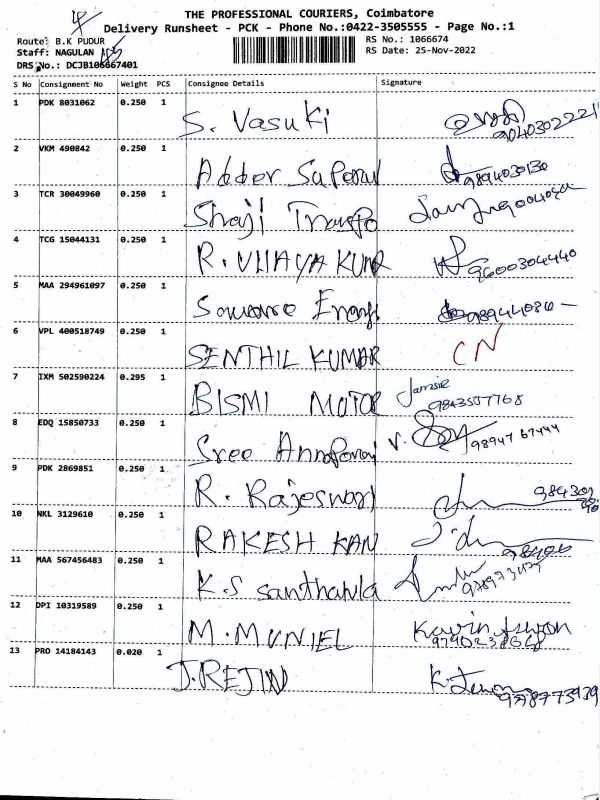 THE PROFESSIONAL COURIERS, Coimbatore
Delivery Runsheet - PCK - Phone No.:0422-3505555 - Page No.:1
Route: B.K PUDUR
RS No.: 1066674
Staff: NAGULAN
RS Date: 25-Nov-2022
DRS No.: DCJB106667401
S No Consignment No Weight PCS Consignee Details Signature
1 PDK 8031062 0.250 1 S. Vasuki
2 VKM 490842 0.250 1
3 TCR 30049960 0.250 1 Shaji Transpo
4 TCG 15044131 0.250 1 R. VIJAYA KUMR 9600304440
5 MAA 294961097 0.250 1
6 VPL 400518749 0.250 1 SENTHIL KUMAR CN
7 IXM 502590224 0.295 1 BISMI MOTOR 9843557768
8 EDQ 15850733 0.250 1 Sree 98947 67444
9 PDK 2869851 0.250 1 R. Rajeswari
10 NKL 3129610 0.250 1 RAKESH KAN
11 MAA 567456483 0.250 1 K.S
12 DPI 10319589 0.250 1 M. MUNIEL
13 PRO 14184143 0.020 1 J. REJIN